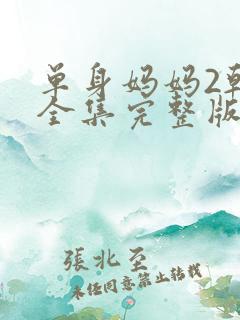 单身妈妈2韩
全集完整版
張北至
未经同意禁止转载